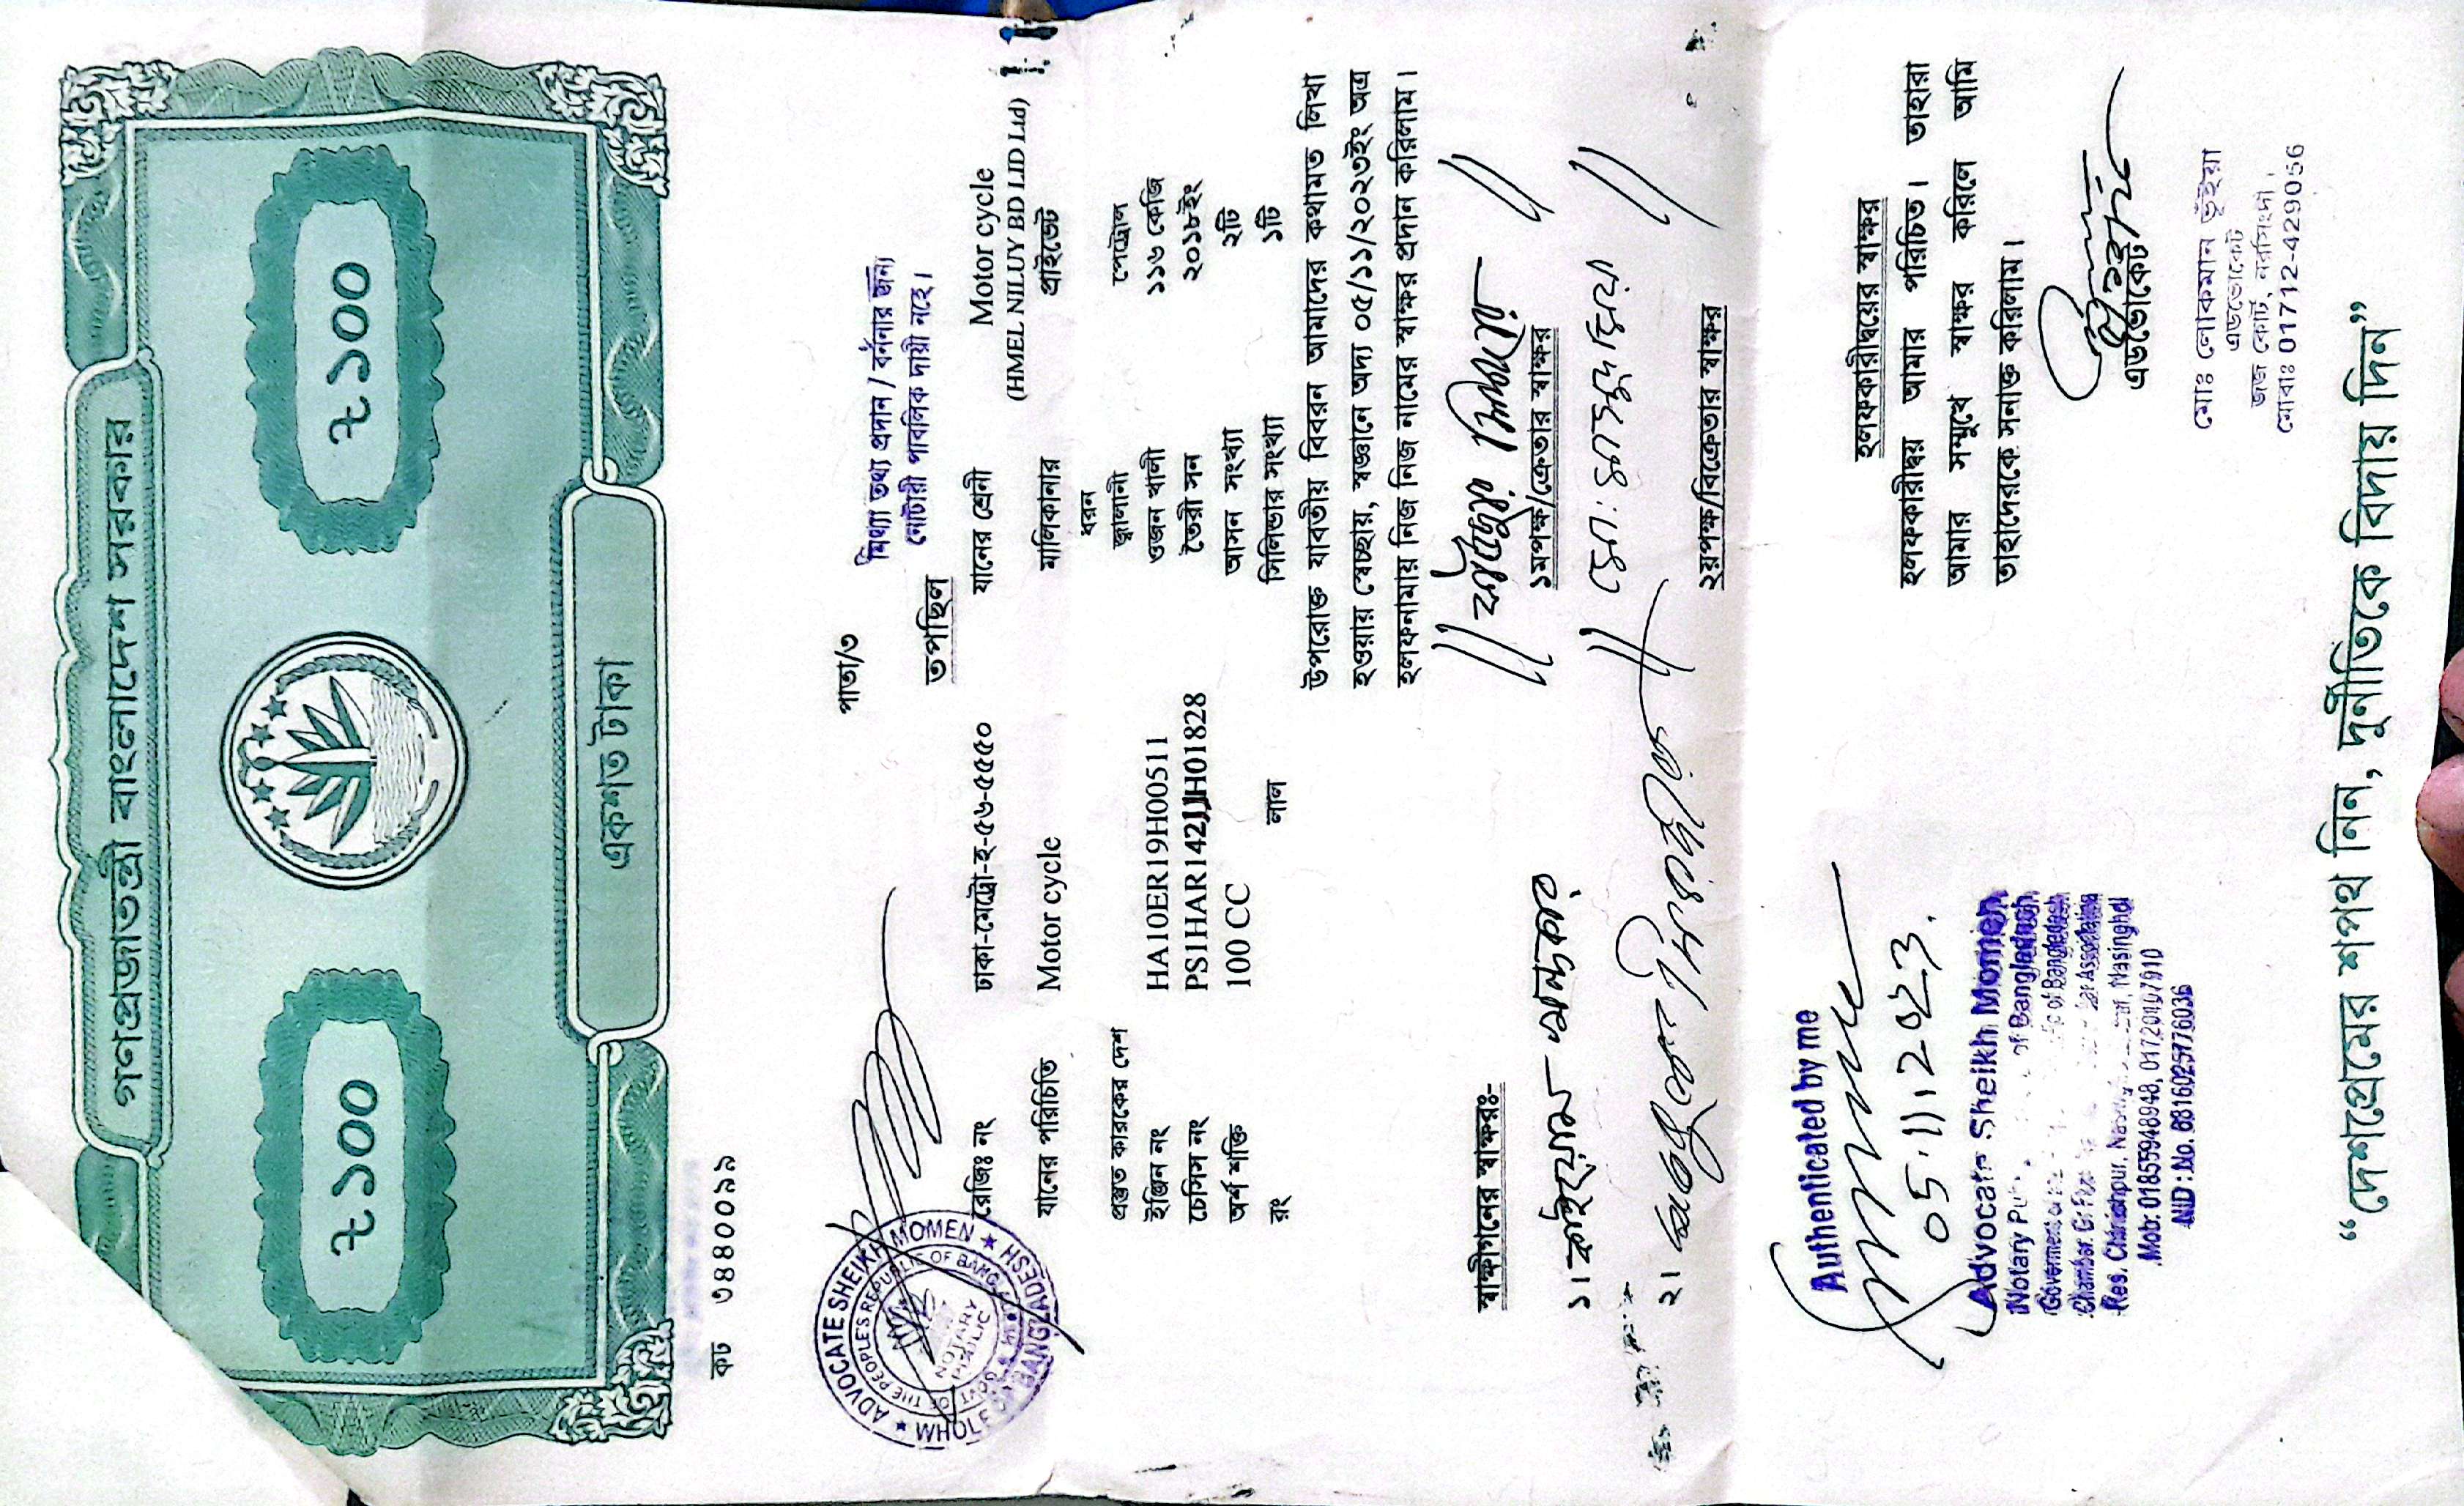 গণপ্রজাতন্ত্রী বাংলাদেশ সরকার
৳ ১০০
৳ ১০০
একশত টাকা
কট ৩৪৪০০৯৯
পাতা/৩
মিথ্যা তথ্য প্রদান / বর্ননার জন্য
নোটারী পাবলিক দায়ী নহে।
তপছিল
ADVOCATE SHEIKH MOMEN
NOTARY PUBLIC
WHOLE BANGLADESH
রেজিঃ নং ঢাকা-মেট্রো-হ-৫৬-৫৫৫০ যানের শ্রেনী Motor cycle
(HMEL NILUY BD LID Ltd)
যানের পরিচিতি Motor cycle মালিকানার প্রাইভেট
ধরন
প্রস্তুত কারকের দেশ জ্বালানী পেট্রোল
ইঞ্জিন নং HA10ER19H00511 ওজন খালী ১১৬ কেজি
চেসিস নং PS1HAR142JJH01828 তৈরী সন ২০১৮ইং
অর্শ শক্তি 100 CC আসন সংখ্যা ২টি
রং লাল সিলিন্ডার সংখ্যা ১টি
উপরোক্ত যাবতীয় বিবরন আমাদের কথামত লিখা
হওয়ায় স্বেচ্ছায়, স্বজ্ঞানে অদ্য ০৫/১১/২০২৩ইং অত্র
হলফনামায় নিজ নিজ নামের স্বাক্ষর প্রদান করিলাম।
১মপক্ষ/ক্রেতার স্বাক্ষর
স্বাক্ষীগনের স্বাক্ষরঃ-
১।
২।
২য়পক্ষ/বিক্রেতার স্বাক্ষর
হলফকারীদ্বয়ের স্বাক্ষর
হলফকারীদ্বয় আমার পরিচিত। তাহারা
আমার সম্মুখে স্বাক্ষর করিলে আমি
তাহাদেরকে সনাক্ত করিলাম।
এডভোকেট
মোঃ লোকমান ভূঁইয়া
এডভোকেট
জজ কোর্ট, নরসিংদী।
মোবাঃ 01712-429056
Authenticated by me
05.11.2023.
Advocate Sheikh Momen
Notary of Bangladesh
of Bangladesh
Bar Association
Res. Chinishpur, Narsinghdi
Mob: 01855948948,
“দেশপ্রেমের শপথ নিন, দুর্নীতিকে বিদায় দিন”